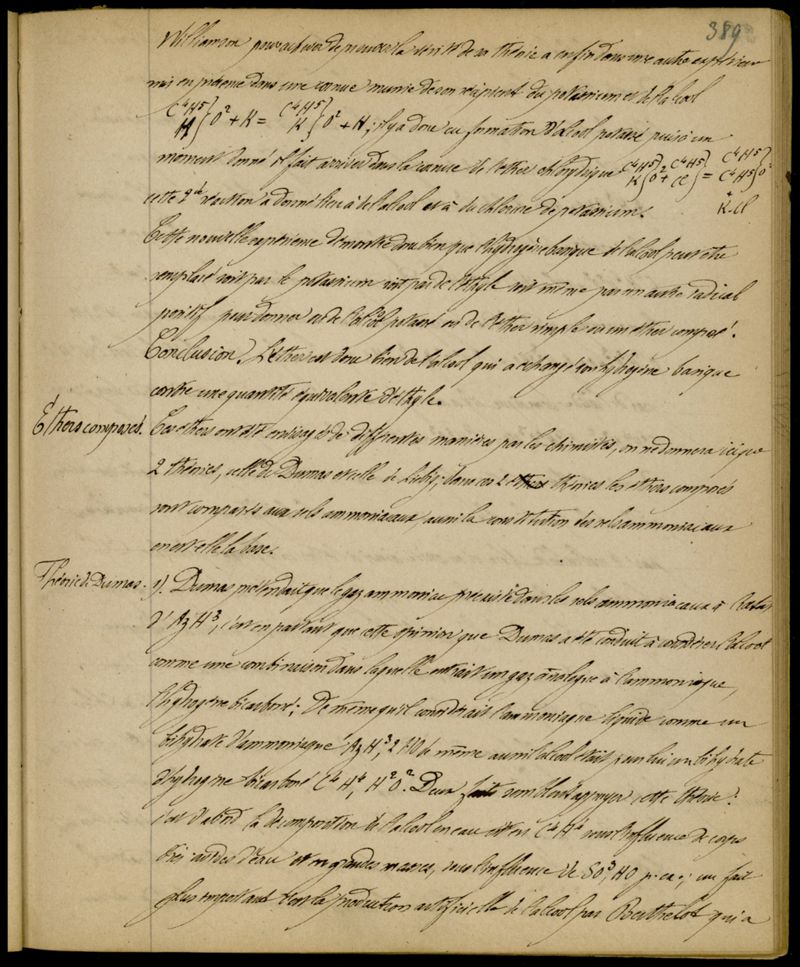 389
Williamson pour achever de prouver la vérité de sa théorie a enfin donné une autre expérience
mis en présence dans une cornue munie de son récipient du potassium et de l'alcool
C⁴H⁵ / H } O² + K = C⁴H⁵ / K } O² + H ; il y a donc eu formation d'alcool potassé, puis à un
moment donné il fait arriver dans la cornue de l'éther chlorydrique C⁴H⁵ / K } O² + C⁴H⁵ / Cl } = C⁴H⁵ / C⁴H⁵ } O²
+ K.Cl
cette 2de réaction a donné lieu à de l'alcool et à du chlorure de potassium.
Cette nouvelle expérience démontre donc bien que l'hydrogène basique de l'alcool peut être
remplacé soit par le potassium soit par de l'éthyle soit même par un autre radical
positif pour donner ou de l'alcool potassé ou de l'éther simple ou un éther composé.
Conclusion. L'éther est donc bien de l'alcool qui a échangé son hydrogène basique
contre une quantité équivalente d'éthyle.
Éthers composés.
Ces éthers ont été envisagés de différentes manières par les chimistes, on ne donnera ici que
2 théories, celle de Dumas et celle de Liebig; dans ces 2 théories les éthers composés
sont comparés aux sels ammoniacaux, aussi la constitution des sels ammoniacaux
en est elle la base.
Théorie de Dumas.
1). Dumas prétendait que le gaz ammoniac préexiste dans les sels ammoniacaux à l'état
d'AzH³, c'est en partant que cette opinion que Dumas a été conduit à considérer l'alcool
comme une combinaison dans laquelle entrait un gaz analogue à l'ammoniaque,
l'hydrogène bicarboné; De même qu'il considérait l'ammoniaque liquide comme un
bihydrate d'ammoniaque AzH³, 2HO de même aussi l'alcool était pour lui un bihydrate
d'hydrogène bicarboné C⁴H⁴, H²O². Deux faits semblent appuyer cette théorie:
c'est d'abord la décomposition de l'alcool en eau et en C⁴H⁴ sous l'influence de corps
très avides d'eau et en grandes masses, sous l'influence de SO³, HO p. ex.; un fait
plus important c'est la production artificielle de l'alcool par Berthelot qui a